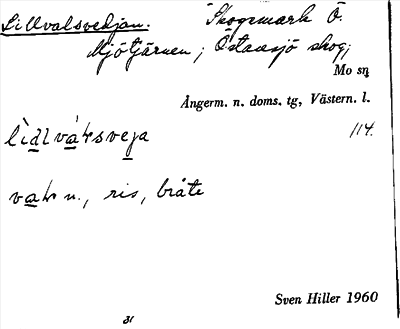 Lillvalsvedjan. Skogsmark Ö.
Mjötjärnen; Östansjö skog;
Mo sn
Ångerm. n. doms. tg, Västern. l.
114.
vak n., ris, bråte
Sven Hiller 1960
31